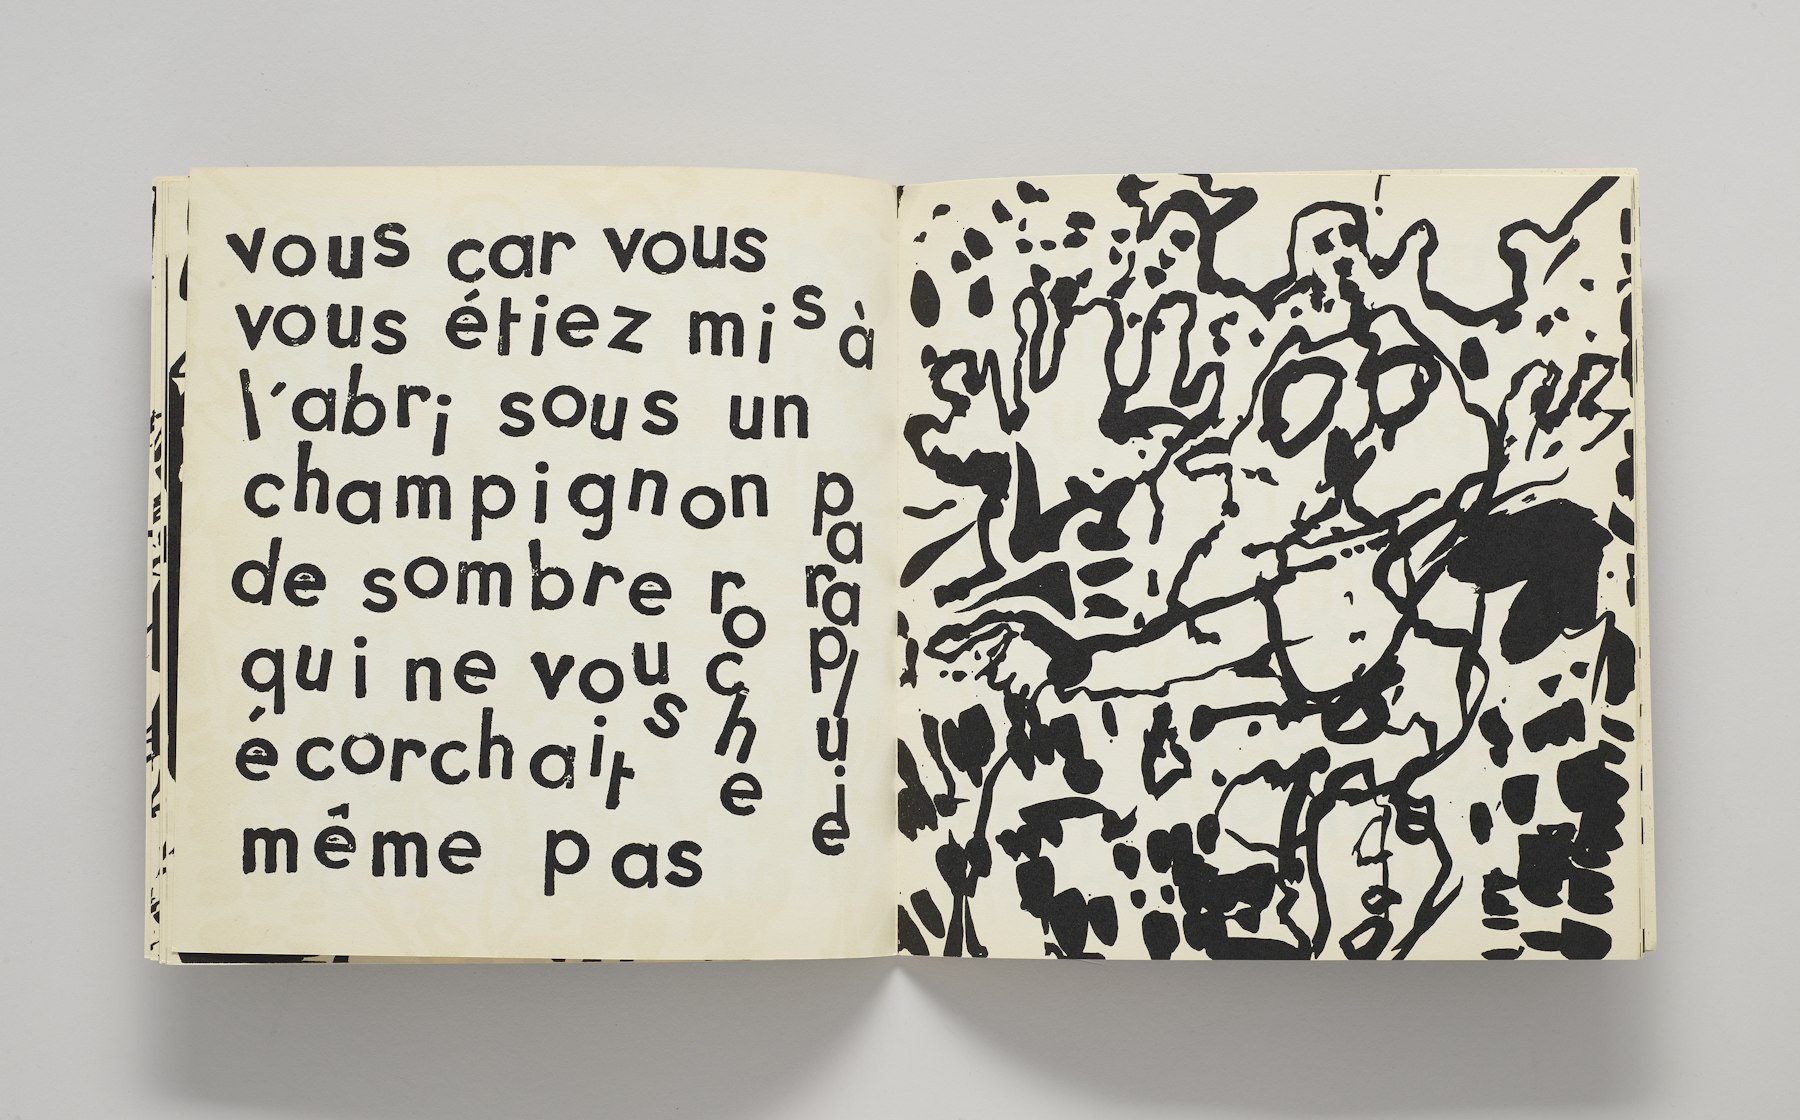 vous car vous
vous étiez mis à
l'abri sous un
champignon parapluie
de sombre roche
qui ne vous
écorchait
même pas